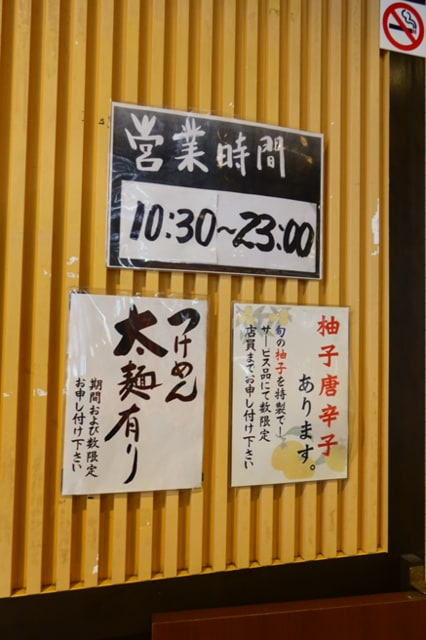 営業時間
10:30~23:00
つけめん
太麺有り
期間および数限定
お申し付け下さい
柚子唐辛子
あります。
旬の柚子を特製で！
サービス品にて数限定
店員までお申し付け下さい